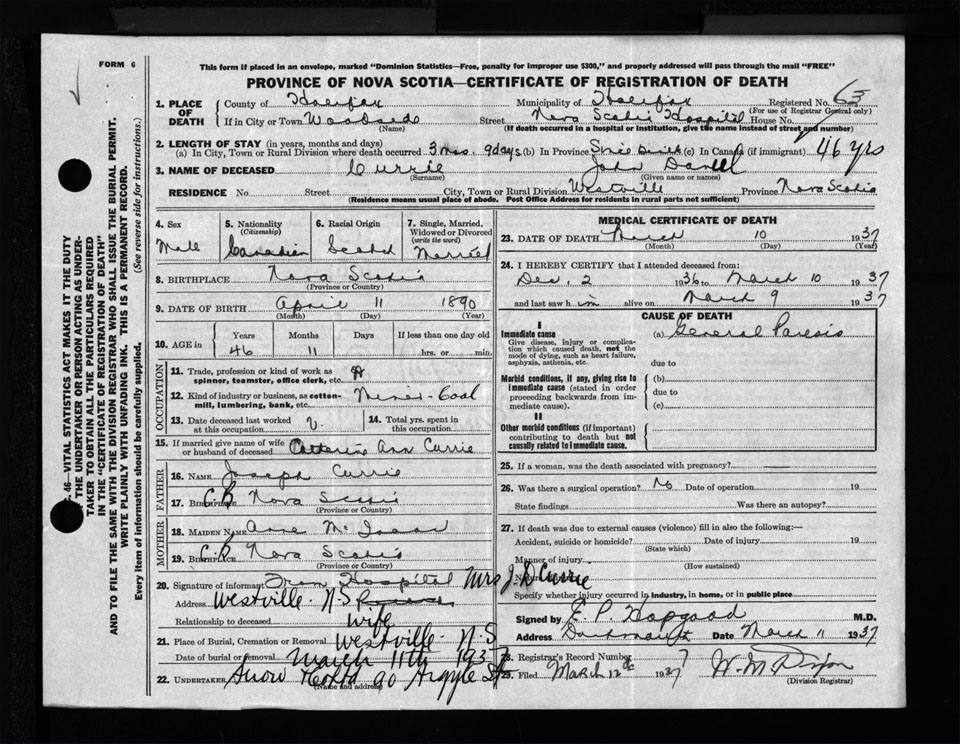 FORM 6
This form if placed in an envelope, marked "Dominion Statistics—Free, penalty for improper use $300," and properly addressed will pass through the mail "FREE"
PROVINCE OF NOVA SCOTIA—CERTIFICATE OF REGISTRATION OF DEATH
1. PLACE OF DEATH County of Halifax Municipality of Halifax Registered No. 63
(For use of Registrar General only)
If in City or Town Woodside Street Nova Scotia Hospital House No.
(Name) (If death occurred in a hospital or institution, give the name instead of street and number)
2. LENGTH OF STAY (in years, months and days)
(a) In City, Town or Rural Division where death occurred 3 mos. 9 days (b) In Province Since Birth (c) In Canada (if immigrant) 46 yrs
3. NAME OF DECEASED Currie John Daniel
(Surname) (Given name or names)
RESIDENCE No. Street City, Town or Rural Division Westville Province Nova Scotia
(Residence means usual place of abode. Post Office Address for residents in rural parts not sufficient)
P. 46—VITAL STATISTICS ACT MAKES IT THE DUTY
THE UNDERTAKER OR PERSON ACTING AS UNDERTAKER TO OBTAIN ALL THE PARTICULARS REQUIRED
IN THE "CERTIFICATE OF REGISTRATION OF DEATH"
AND TO FILE THE SAME WITH THE DIVISION REGISTRAR WHO SHALL ISSUE THE BURIAL PERMIT.
WRITE PLAINLY WITH UNFADING INK. THIS IS A PERMANENT RECORD.
Every item of information should be carefully supplied. (See reverse side for instructions.)
4. Sex Male
5. Nationality (Citizenship) Canadian
6. Racial Origin Scotch
7. Single, Married, Widowed or Divorced (write the word) Married
8. BIRTHPLACE Nova Scotia
(Province or Country)
9. DATE OF BIRTH April 11 1890
(Month) (Day) (Year)
10. AGE in Years Months Days If less than one day old
46 11 hrs. or min.
OCCUPATION
11. Trade, profession or kind of work as spinner, teamster, office clerk, etc.
12. Kind of industry or business, as cotton-mill, lumbering, bank, etc. Miner - Coal
13. Date deceased last worked at this occupation
14. Total yrs. spent in this occupation
15. If married give name of wife or husband of deceased Catherine Ann Currie
FATHER
16. NAME Joseph Currie
17. BIRTHPLACE C.B. Nova Scotia
(Province or Country)
MOTHER
18. MAIDEN NAME Anne McIsaac
19. BIRTHPLACE C.B. Nova Scotia
(Province or Country)
20. Signature of informant From Hospital Mrs J D Currie
Address Westville. N.S
Relationship to deceased Wife
21. Place of Burial, Cremation or Removal Westville. N.S
Date of burial or removal March 11th 1937
22. UNDERTAKER Snow & Co Ltd 90 Argyle St
(Name and address)
MEDICAL CERTIFICATE OF DEATH
23. DATE OF DEATH March 10 1937
(Month) (Day) (Year)
24. I HEREBY CERTIFY that I attended deceased from:
Dec. 2 1936 to March 10 1937
and last saw him alive on March 9 1937
CAUSE OF DEATH
I
Immediate cause (a) General Paresis
Give disease, injury or complication which caused death, not the mode of dying, such as heart failure, asphyxia, asthenia, etc.
due to
Morbid conditions, if any, giving rise to immediate cause (stated in order proceeding backwards from immediate cause).
(b)
due to
(c)
II
Other morbid conditions (if important) contributing to death but not causally related to immediate cause.
25. If a woman, was the death associated with pregnancy?
26. Was there a surgical operation? No Date of operation 19
State findings Was there an autopsy?
27. If death was due to external causes (violence) fill in also the following:—
Accident, suicide or homicide? Date of injury 19
(State which)
Manner of injury
(How sustained)
Specify whether injury occurred in industry, in home, or in public place
Signed by E. P. Hopgood M.D.
Address Dartmouth Date March 11 1937
28. Registrar's Record Number 7
29. Filed March 12 1937
(Division Registrar)